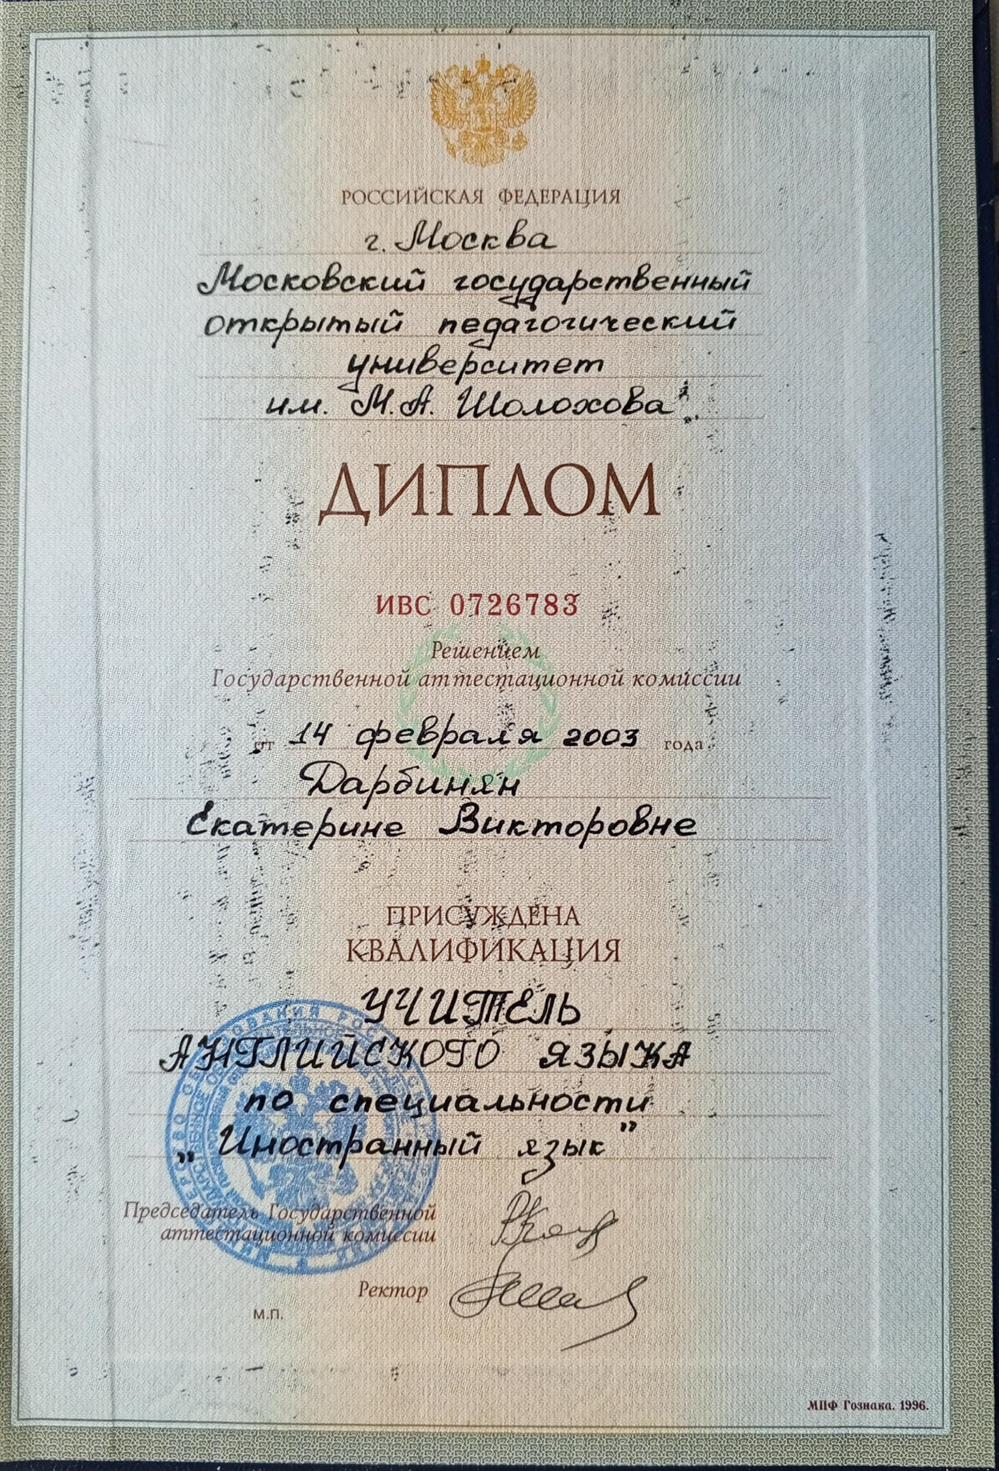 РОССИЙСКАЯ ФЕДЕРАЦИЯ
г. Москва
Московский государственный
открытый педагогический
университет
им. М.А. Шолохова
ДИПЛОМ
ИВС 0726783
Решением
Государственной аттестационной комиссии
от 14 февраля 2003 года
Дарбинян
Екатерине Викторовне
ПРИСУЖДЕНА
КВАЛИФИКАЦИЯ
УЧИТЕЛЬ
АНГЛИЙСКОГО ЯЗЫКА
по специальности
„Иностранный язык"
Председатель Государственной
аттестационной комиссии
Ректор
М.П.
МПФ Гознака. 1996.